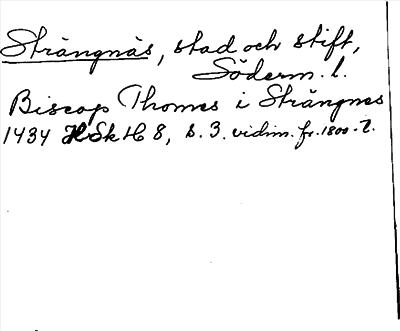 Strängnäs, stad och stift,
Söderm. l.
Biscop Thomes i Strängnes
1434 HSkH 8, s. 3. vidim. fr. 1800-t.